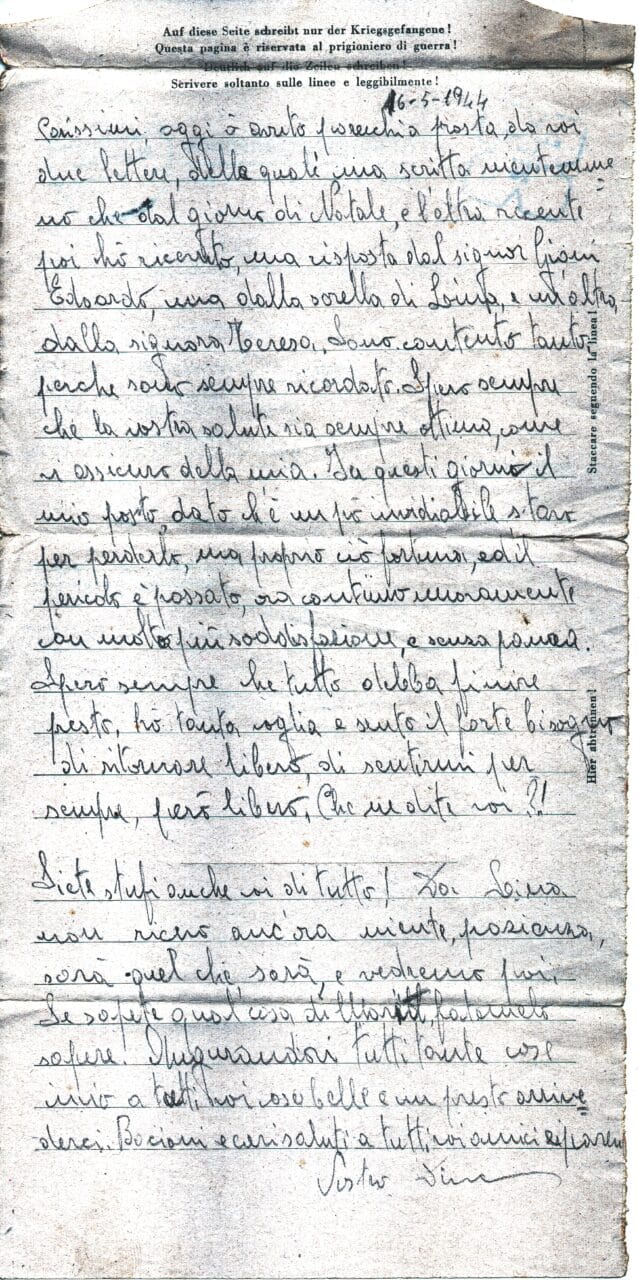 Auf diese Seite schreibt nur der Kriegsgefangene!
Questa pagina è riservata al prigioniero di guerra!
Deutlich auf die Zeilen schreiben!
Scrivere soltanto sulle linee e leggibilmente!
16-5-1944
Carissimi, oggi ò avuto parecchia posta, da voi
due lettere, delle quali una scritta nientemme
no che dal giorno di Natale, e l'altra recente
poi hò ricevuto, una risposta dal signor
Edoardo, una dalla sorella di e un'altra
dalla signora Teresa. Sono contento tanto,
perche sono sempre ricordato. Spero sempre
che la vostra salute sia sempre ottima, come
vi assicuro della mia. In questi giorni il
mio posto, dato ch'è un pò invidiabile stavo
per perderlo, ma proprio ciò fortuna, ed il
pericolo è passato, ora continuo
con molto più soddisfazione, e senza paura.
Spero sempre che tutto debba finire
presto, hò tanta voglia e sento il forte bisogno
di ritornare libero, di sentirmi per
sempre, però libero, Che ne dite voi?!
Siete stufi anche voi di tutto! Da
non ricevo anc'ora niente, pazienza,
sarà quel che sarà, e vedremo poi.
Se sapete qual'cosa di fatemelo
sapere. Augurandovi tutti tante cose
invio a tutti voi cose belle e un presto arrive
derci. Bacioni e cari saluti a tutti voi amici e paren
Vostro
Staccare seguendo la linea!
Hier abtrennen!